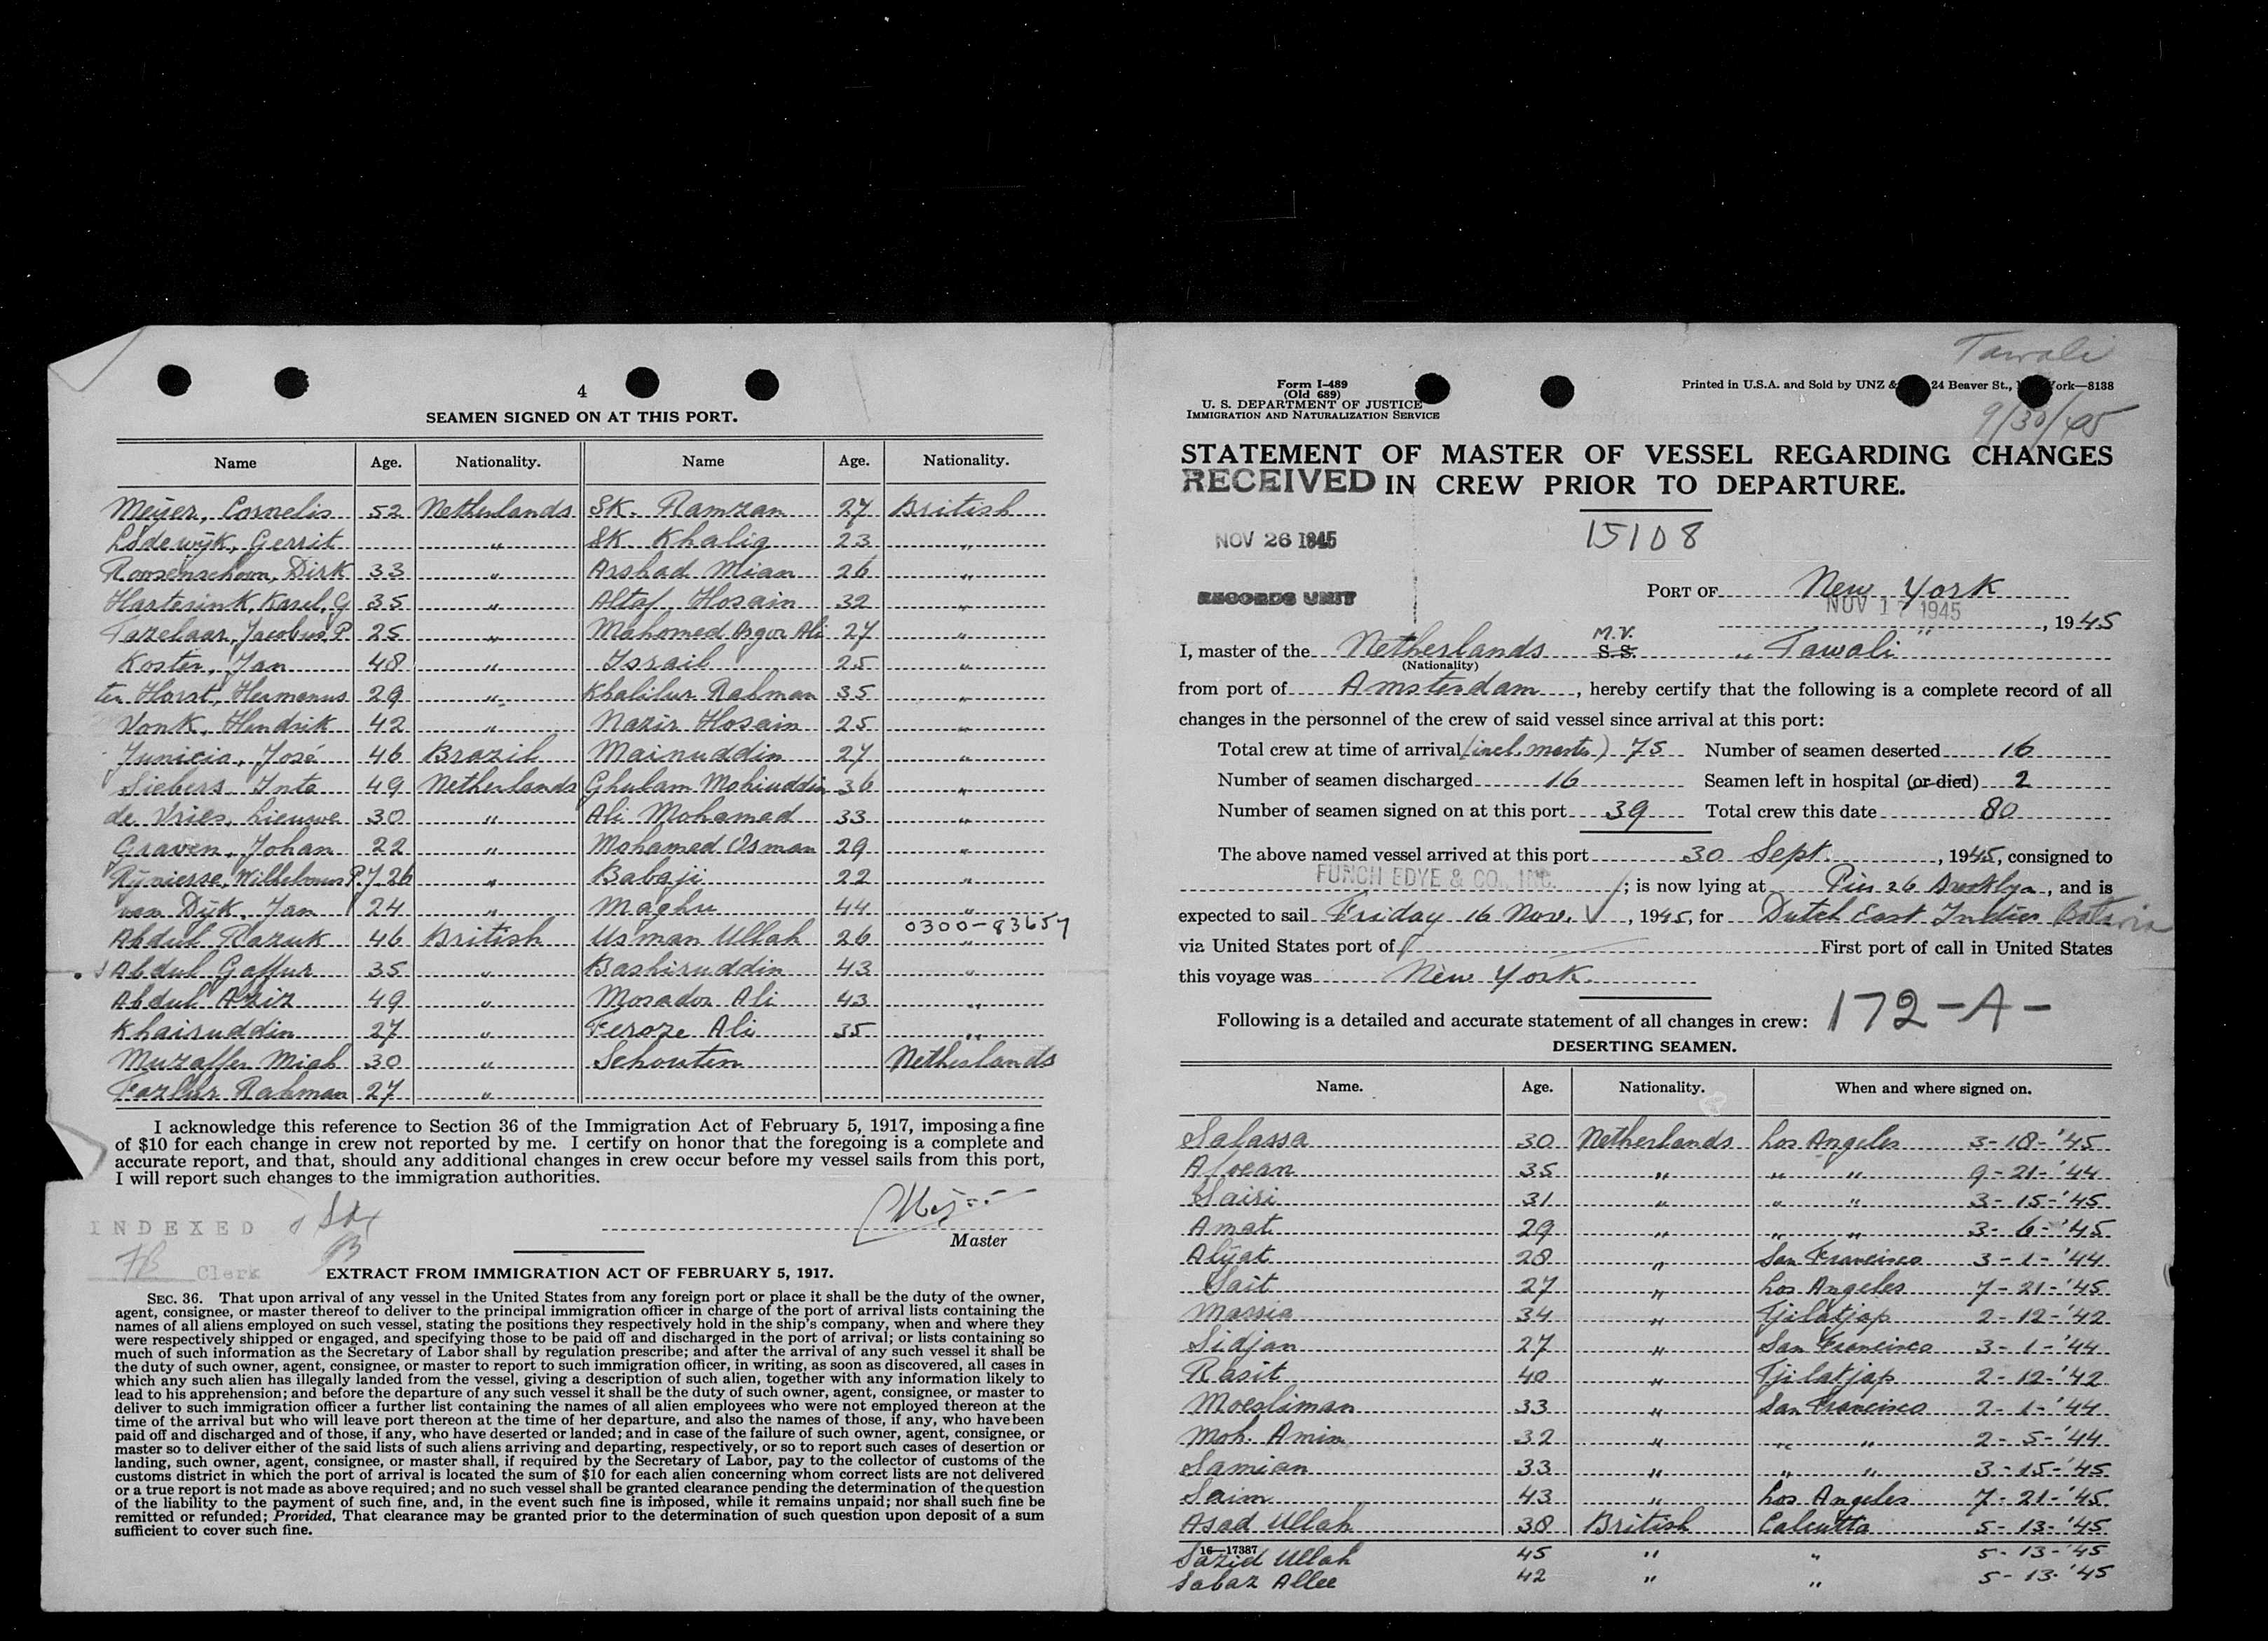 4
SEAMEN SIGNED ON AT THIS PORT.
Name Age. Nationality. Name Age. Nationality.
Meijer, Cornelis 52 Netherlands SK. Ramzan 27 British
Lodewijk, Gerrit " SK Khaliq 23 "
Roosenschoon, Dirk 33 " Arshad Mian 26 "
Harterink, Karel, G 35 " Altaf Hosain 32 "
Tazelaar, Jacobus, P. 25 " Mahomed Asgor Ali 27 "
Koster, Jan 48 " Israil 25 "
ter Horst, Hermanus 29 " Khalilur Rahman 35 "
Vonk, Hendrik 42 " Nazir Hosain 25 "
Junicia, José 46 Brazil Mainuddin 27 "
Siebers Inte 49 Netherlands Ghulam Mohiuddin 36 "
de Vries, Lieuwe 30 " Ali Mohamed 33 "
Graven, Johan 22 " Mohamed Osman 29 "
Rijnierse, Wilhelmus P.J 26 " Babaji 22 "
van Dijk, Jan 24 " Maghu 44 "
0300-83657
Abdul Razuk 46 British Usman Ullah 26 "
Abdul Gaffur 35 " Bashiruddin 43 "
Abdul Aziz 49 " Mosador Ali 43 "
Khairuddin 27 " Feroze Ali 35 "
Muzaffer Miah 30 " Schouten Netherlands
Fazlur Rahman 27 "
I acknowledge this reference to Section 36 of the Immigration Act of February 5, 1917, imposing a fine
of $10 for each change in crew not reported by me. I certify on honor that the foregoing is a complete and
accurate report, and that, should any additional changes in crew occur before my vessel sails from this port,
I will report such changes to the immigration authorities.
INDEXED
Master
Clerk
EXTRACT FROM IMMIGRATION ACT OF FEBRUARY 5, 1917.
SEC. 36. That upon arrival of any vessel in the United States from any foreign port or place it shall be the duty of the owner,
agent, consignee, or master thereof to deliver to the principal immigration officer in charge of the port of arrival lists containing the
names of all aliens employed on such vessel, stating the positions they respectively hold in the ship's company, when and where they
were respectively shipped or engaged, and specifying those to be paid off and discharged in the port of arrival; or lists containing so
much of such information as the Secretary of Labor shall by regulation prescribe; and after the arrival of any such vessel it shall be
the duty of such owner, agent, consignee, or master to report to such immigration officer, in writing, as soon as discovered, all cases in
which any such alien has illegally landed from the vessel, giving a description of such alien, together with any information likely to
lead to his apprehension; and before the departure of any such vessel it shall be the duty of such owner, agent, consignee, or master to
deliver to such immigration officer a further list containing the names of all alien employees who were not employed thereon at the
time of the arrival but who will leave port thereon at the time of her departure, and also the names of those, if any, who have been
paid off and discharged and of those, if any, who have deserted or landed; and in case of the failure of such owner, agent, consignee, or
master so to deliver either of the said lists of such aliens arriving and departing, respectively, or so to report such cases of desertion or
landing, such owner, agent, consignee, or master shall, if required by the Secretary of Labor, pay to the collector of customs of the
customs district in which the port of arrival is located the sum of $10 for each alien concerning whom correct lists are not delivered
or a true report is not made as above required; and no such vessel shall be granted clearance pending the determination of the question
of the liability to the payment of such fine, and, in the event such fine is imposed, while it remains unpaid; nor shall such fine be
remitted or refunded; Provided, That clearance may be granted prior to the determination of such question upon deposit of a sum
sufficient to cover such fine.
Tawali
Form I-489
(Old 689)
U. S. DEPARTMENT OF JUSTICE
IMMIGRATION AND NATURALIZATION SERVICE
Printed in U.S.A. and Sold by UNZ & 24 Beaver St., York—8138
9/30/45
STATEMENT OF MASTER OF VESSEL REGARDING CHANGES
RECEIVED IN CREW PRIOR TO DEPARTURE.
15108
NOV 26 1945
RECORDS UNIT
PORT OF New York
NOV 1 1945
, 1945
I, master of the Netherlands M.V. S.S. "Tawali"
(Nationality)
from port of Amsterdam, hereby certify that the following is a complete record of all
changes in the personnel of the crew of said vessel since arrival at this port:
Total crew at time of arrival (incl. master) 75 Number of seamen deserted 16
Number of seamen discharged 16 Seamen left in hospital (or died) 2
Number of seamen signed on at this port 39 Total crew this date 80
The above named vessel arrived at this port 30 Sept., 1945, consigned to
FUNCH EDYE & CO., INC. ; is now lying at Pier 26 Brooklyn, and is
expected to sail Friday 16 Nov., 1945, for Dutch East Indies Batavia
via United States port of First port of call in United States
this voyage was New York.
Following is a detailed and accurate statement of all changes in crew: 172-A-
DESERTING SEAMEN.
Name. Age. Nationality. When and where signed on.
Salassa 30 Netherlands Los Angeles 3-18-'45
Aloean 35 " " " 9-21-'44
Sairi 31 " " " 3-15-'45
Amat 29 " " " 3-6-'45
Alijat 28 " San Francisco 3-1-'44
Sait 27 " Los Angeles 7-21-'45
Marsia 34 " Tjilatjap 2-12-'42
Sidjan 27 " San Francisco 3-1-'44
Rasit 40 " Tjilatjap 2-12-'42
Moesliman 33 " San Francisco 2-1-'44
Moh. Amin 32 " " " 2-5-'44
Samian 33 " " " 3-15-'45
Saim 43 " Los Angeles 7-21-'45
Asad Ullah 38 British Calcutta 5-13-'45
16—17387
Sazid Ullah 45 " " 5-13-'45
Sabaz Allee 42 " " 5-13-'45